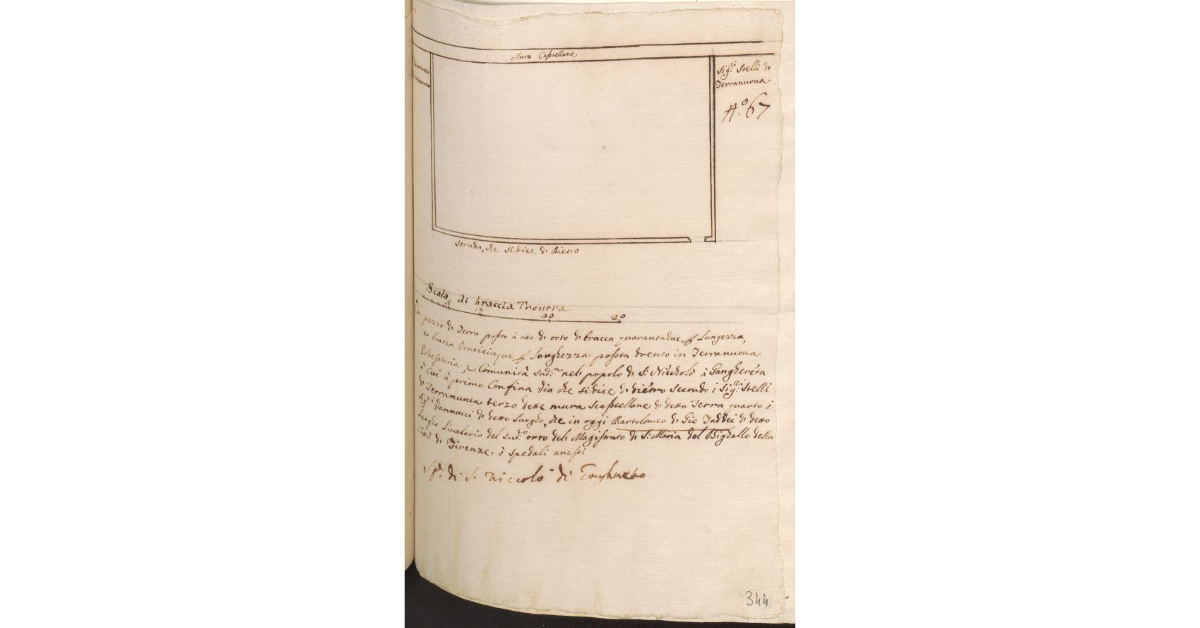 Mura Castellane
Sig.ri Stelli di
Terranuova
N.o 67
Strada, che si dice di Dietro
Scala di braccia Trentra
10 20 30
pezzo di Terra posto à uso di orto di bracca quarantadue p Lungezza,
e bracca venticinque p Langhezza posta drento in Terranuova
Potesteria, e Comunità sud.a nel popolo di S. Nicholò à Gangherèta
à Cui à primo Confina Via che si dice di dietro secondo i Sig.ri Stelli
di Terranuova terzo dette mura Scastellane di detta Terra quarto i
Sig.ri Vannucci di detto Luogho, che in oggi Bartolomeo di Gio Taddei di detto
Luogho Livelario del sud.o orto del Magistrato di S. Maria del Bigallo della
Città di Firenze, e spedali anessi
Sp.e di S. Niccolò di Ganghereto
344